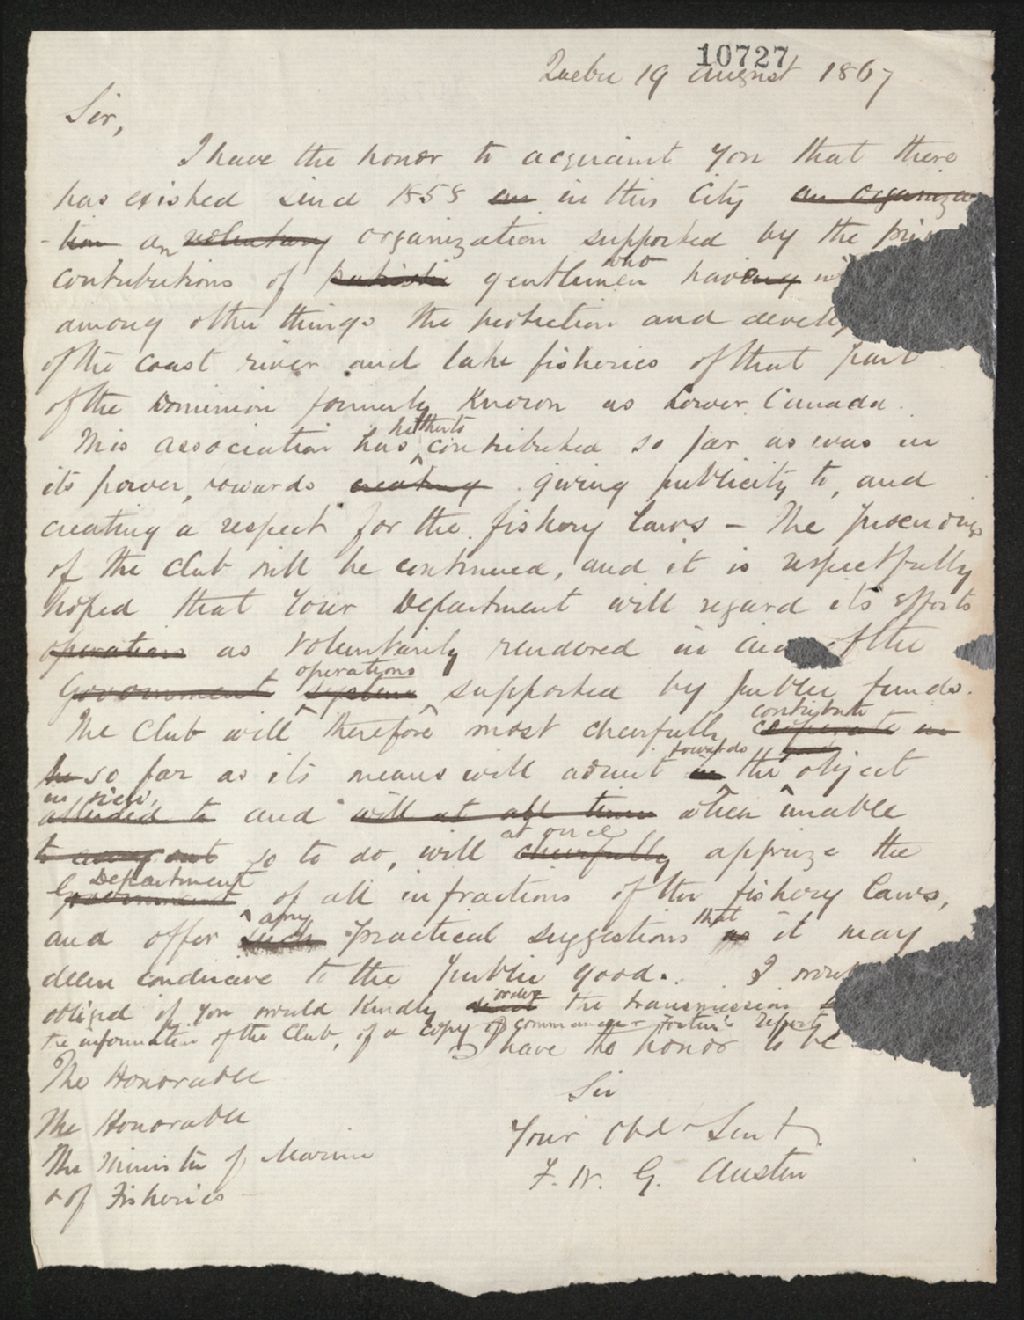 10727
Quebec 19 August 1867
Sir,
I have the honor to acquaint You that there
has existed since 1858 an in this City an organiza
-tion an voluntary organization supported by the
contributions of gentlemen who having
among other things the protection and develop
of the coast river and lake fisheries of that part
of the Dominion formerly Known as Lower Canada.
This association has hitherto contributed so far as was in
its power, towards creating giving publicity to, and
creating a respect for the fishery Laws – The proceedings
of the Club will be continued, and it is respectfully
hoped that Your Department will regard its efforts
operations as voluntarily rendered in aid of the
Government operations system supported by public funds.
The Club will therefore most cheerfully contribute cooperate in
so far as its means will admit towards in the object
in view, alluded to and will at all times when unable
to carry out so to do, will at once cheerfully apprize the
Department Government of all infractions of the fishery laws,
and offer any such practical suggestions that as it may
deem conducive to the public good. I would
obliged if You would Kindly order direct the transmission
the information of the Club, of a copy of Commander Fortin's Report
I have the honor to be
The Honorable
Sir
The Honorable
Your Obdt Servt
The Minister of Marine
F. W. G. Austin
& of Fisheries